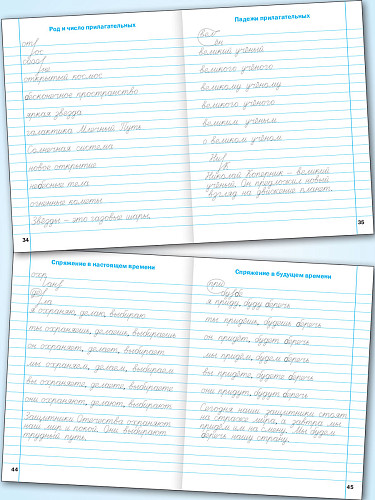 Род и число прилагательных
отк
кос
обоб
зве
открытый космос
бесконечное пространство
яркая звезда
галактика Млечный Путь
Солнечная система
новое открытие
небесные тела
огненные кометы
Звёзды – это газовые шары.
34
Падежи прилагательных
Вел
ён
великий учёный
великого учёного
великому учёному
великого учёного
великим учёным
о великом учёном
Ник
Николай Коперник – великий
учёный. Он предложил новый
взгляд на движение планет.
35
Спряжение в настоящем времени
охр
я охраняю, делаю, выбираю
ты охраняешь, делаешь, выбираешь
он охраняет, делает, выбирает
мы охраняем, делаем, выбираем
вы охраняете, делаете, выбираете
они охраняют, делают, выбирают
Защитники Отечества охраняют
наш мир и покой. Они выбирают
трудный путь.
44
Спряжение в будущем времени
при
я приду, буду беречь
ты придёшь, будешь беречь
он придёт, будет беречь
мы придём, будем беречь
вы придёте, будете беречь
они придут, будут беречь
Сегодня наши защитники стоят
на страже мира, а завтра мы
придём им на смену. Мы будем
беречь нашу страну.
45